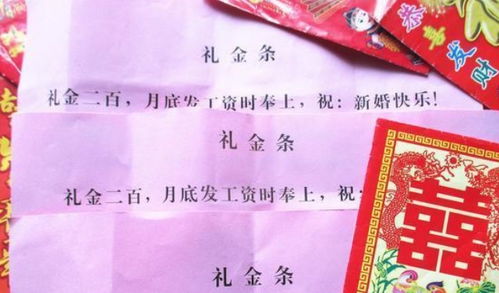 恭喜发财
礼金条
礼金二百，月底发工资时奉上，祝：新婚快乐！
礼金条
礼金二百，月底发工资时奉上，祝：
礼金条
囍